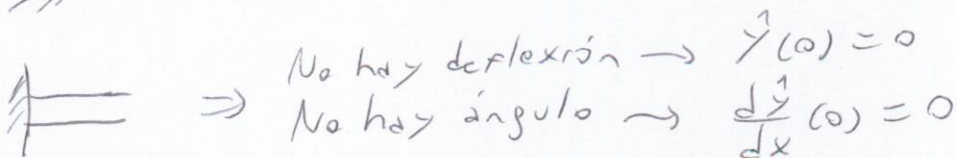 No hay deflexión → ŷ(0) = 0
⇒ No hay ángulo → dŷ/dx (0) = 0